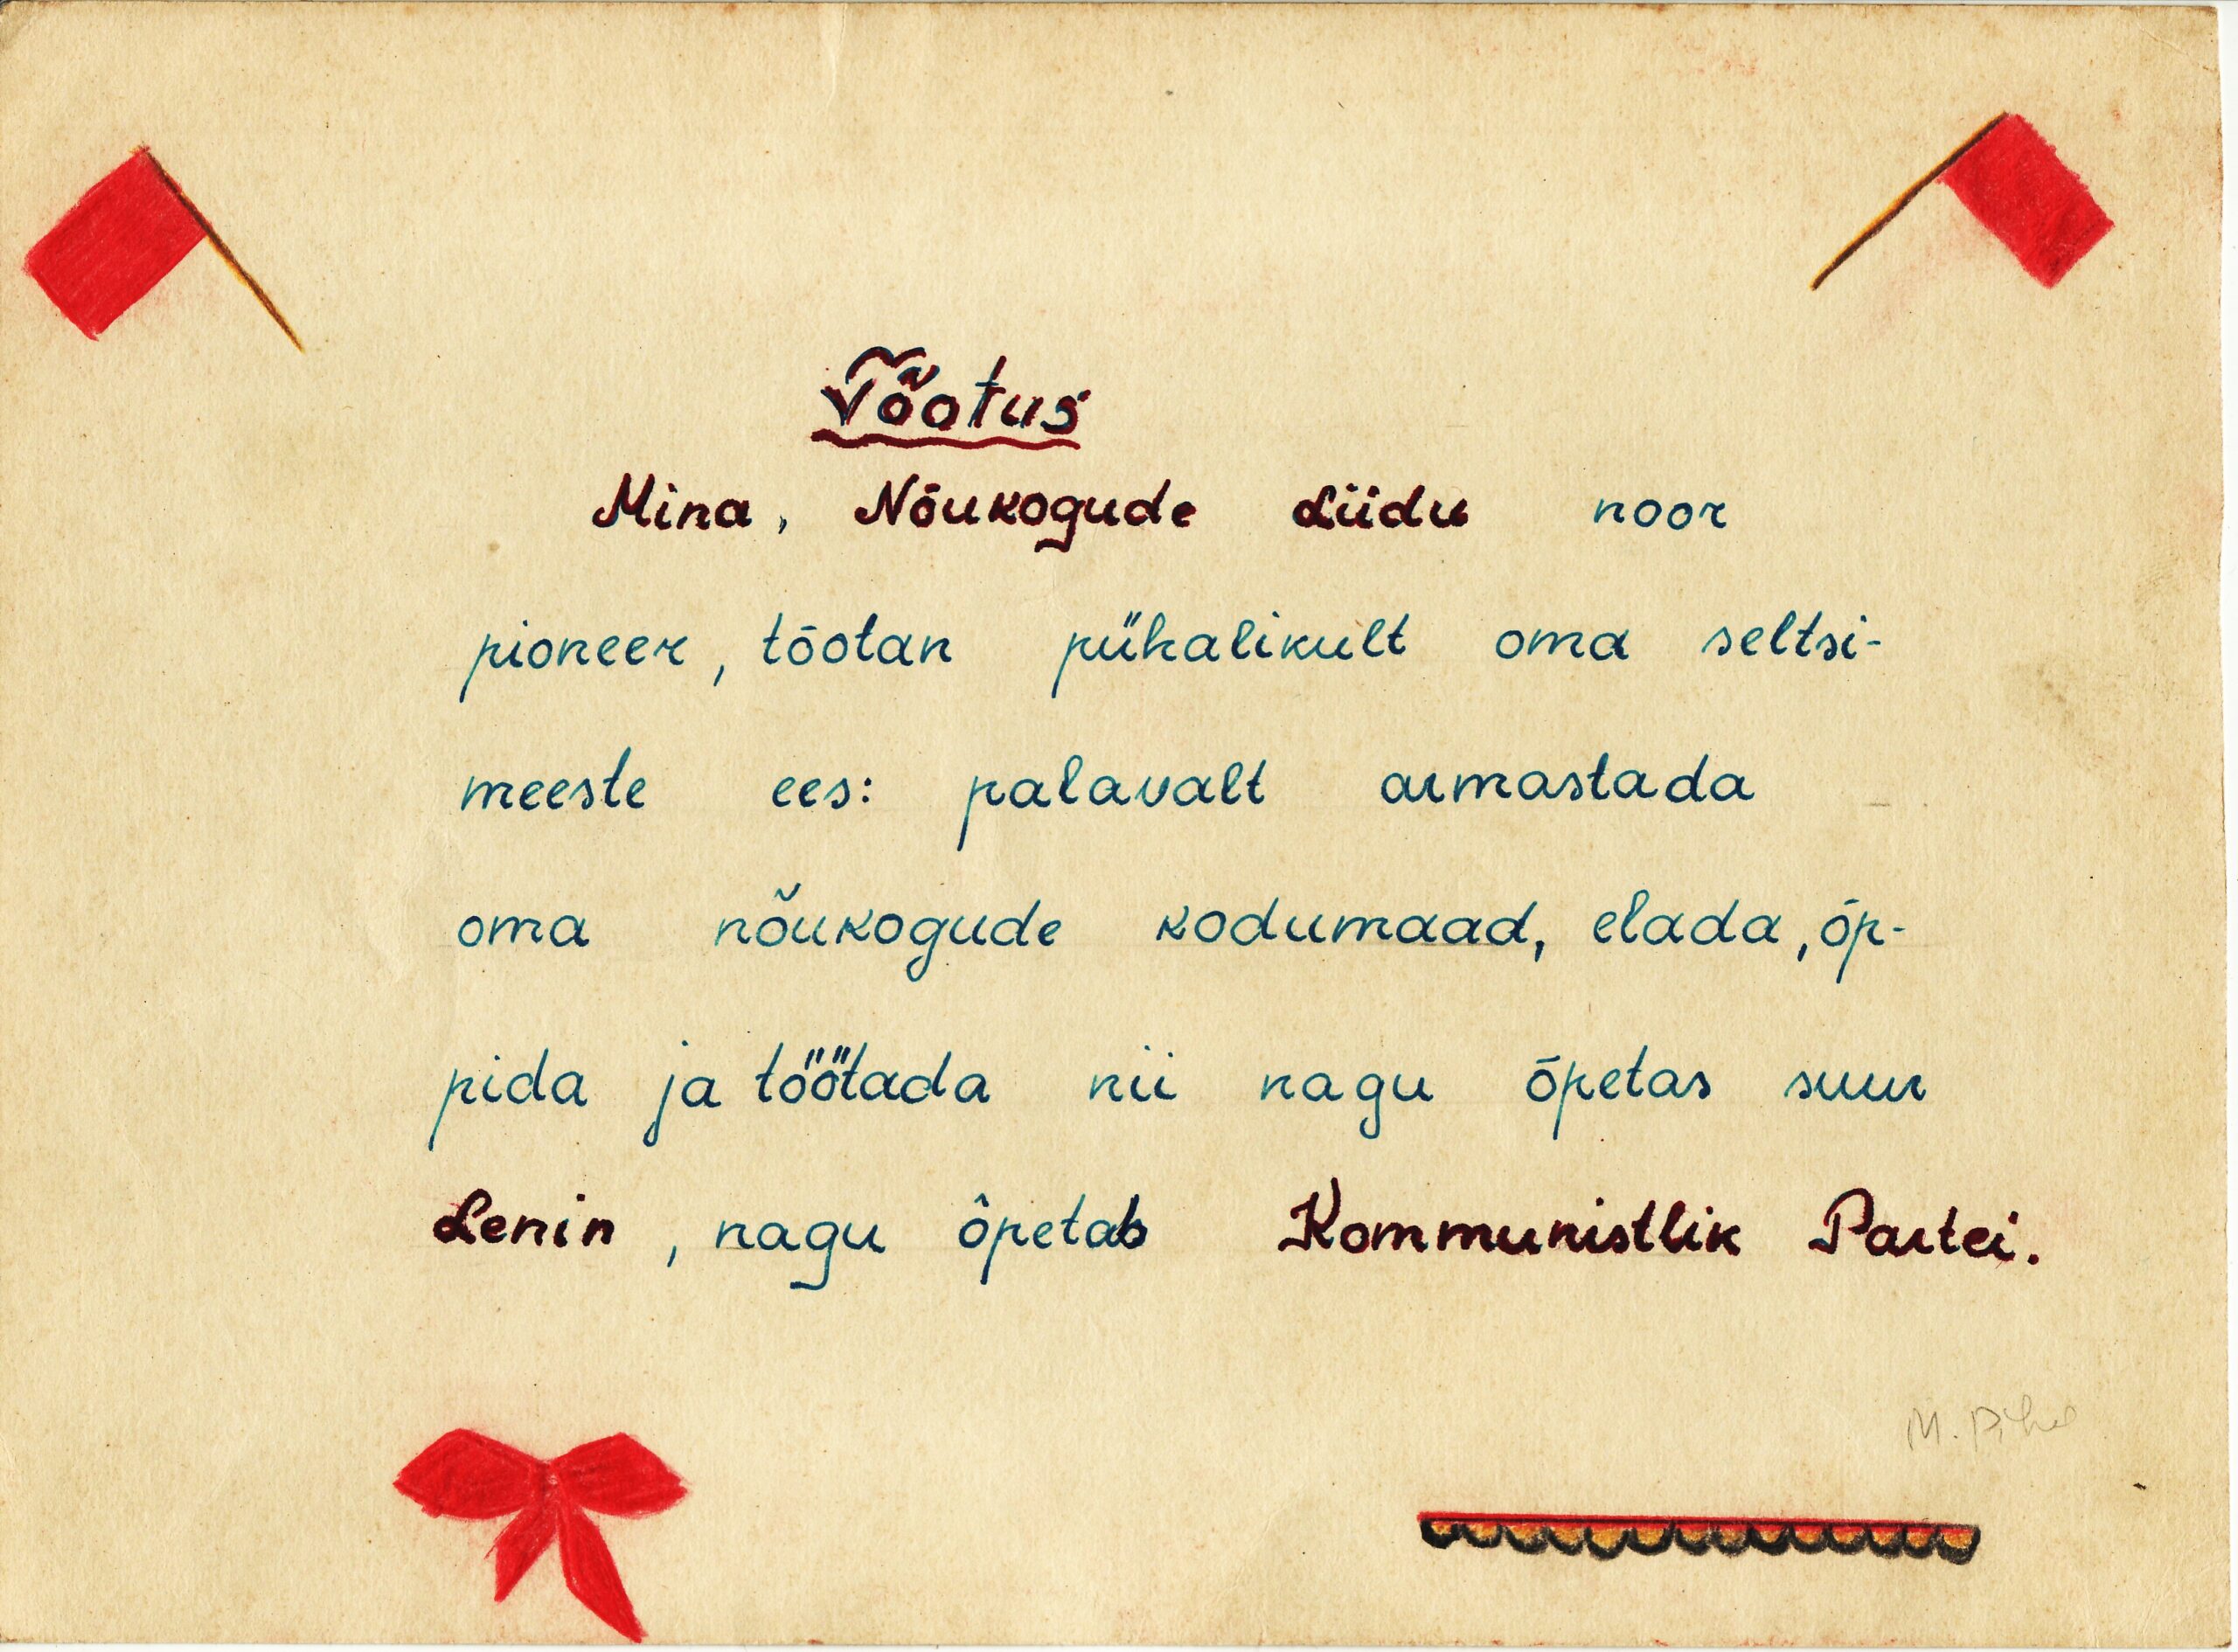 Tõotus
Mina, Nõukogude Liidu noor
pioneer, tõotan pühalikult oma seltsi-
meeste ees: palavalt armastada
oma nõukogude kodumaad, elada, õp-
pida ja töötada nii nagu õpetas suur
Lenin, nagu õpetab Kommunistlik Partei.
M.